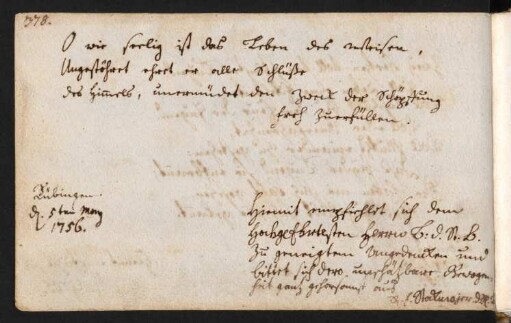 378.
O wie seelig ist das Leben des Weisen,
Ungestöhret ehret er alle Schlüße
des Himmels, unermüdet den Zweck der Schöpfung
froh Zuerfüllen.
Tübingen.
d. 5ten May
1756.
Hiemit empfiehlet sich dem
Hochgeehrtesten Herrn B. d. St. B.
Zu geneigtem Angedencken und
bittet sich dero unschäzbare Gewogen
heit ganz gehorsamst aus